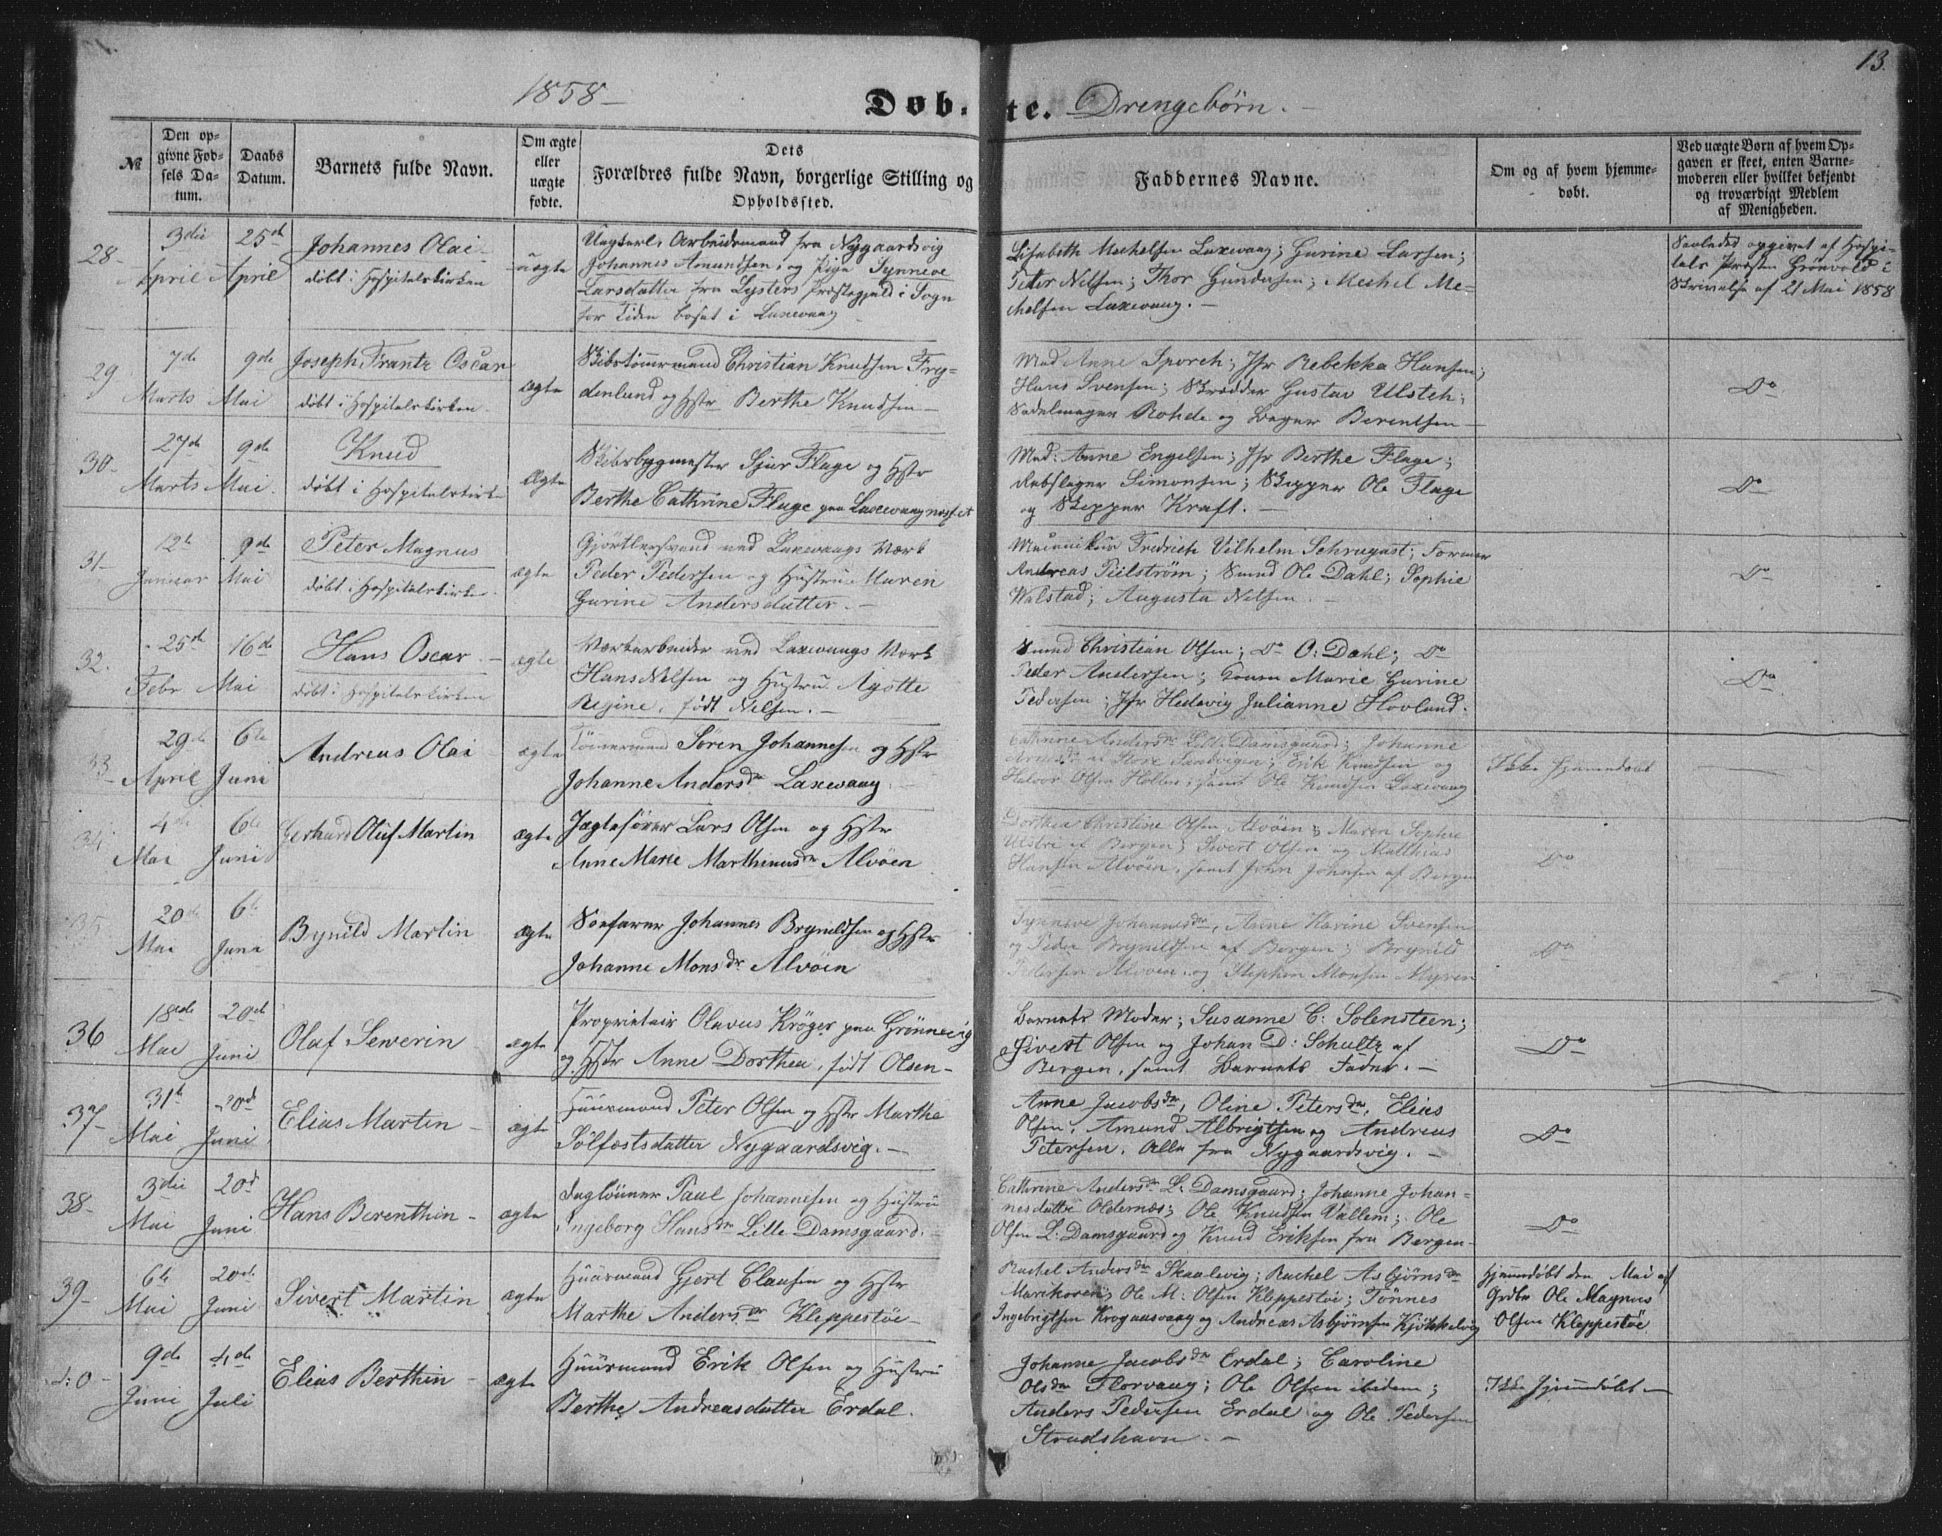 13.
1858 –
Døb-te. Drengebørn. –
№
Den opgivne Fødsels Datum.
Daabs Datum.
Barnets fulde Navn.
Om ægte eller uægte fødte.
Dets Forældres fulde Navn, borgerlige Stilling og Opholdssted.
Faddernes Navne.
Om og af hvem hjemmedøbt.
Ved uægte Børn af hvem Opgaven er skeet, enten Barnemoderen eller hvilket bekjendt og troværdigt Medlem af Menigheden.
28 –
3die April
25de April
Johannes Olai
døbt i Hospitalskirken
uægte
Ungkarl Arbeidsmand fra Nygaardsvig
Johannes Amundsen, og Pige Synneve
Larsdatter fra Lysters Præstegjeld i Sogn
for Tiden bosat i Laxevaag
Lisabeth Mechelsen Laxevaag; Gurine Larsen;
Peter Nelsen; Thor Gundersen; Mechel Me-
chelsen Laxevaag. –
Saaledes opgivet af Hospi-
tals Præsten Grønvold i
Skrivelse af 21 Mai 1858
29
7de Marts
9de Mai
Joseph Frantz Oscar
døbt i Hospitalskirken
ægte
Skibstømmermand Christian Knudsen Fry-
denlund og Hstr Berthe Knudsen –
Mad Anne Sporch; Jfr Rebekka Hansen;
Hans Svensen; Skrædder Gustav Ulsteh;
Sadelmager Rohde og Bager Berentsen –
Do
30 –
27de Marts
9de Mai.
Knud
døbt i Hospitalskirke
Ægte
Skibsbygmester Sjur Flage og Hstr
Berthe Cathrine Flage paa Laxevaagnesset
Mad: Anne Engelsen; Jfr Berthe Flage;
Rebslager Simonsen; Skipper Ole Flage
og Skipper Kraft. –
Do
31 –
12te Januar
9de Mai
Peter Magnus
døbt i Hospitalskirken
ægte
Gjørtlersvend ved Laxevaags Værk
Peder Pedersen og Hustrue Maren
Gurine Andersdatter. –
Fredrich Vilhelm Schrugast; Former
Andreas Piilstrøm; Smed Ole Dahl; Sophie
Walstad; Augusta Nelsen. –
Do
32.
25de Febr
16de Mai
Hans Oscar. –
døbt i Hospitalskirken
ægte
Værkarbeider ved Laxevaags Værk
Hans Nelsen og Hustru Agotte
Regine, født Nelsen. –
Smed Christian Olsen; Do O. Dahl; Do
Peder Andersen; Konen Marie Gurine
Pedersen; Jfr Hedevig Julianne Hovland.
Do
33 –
29de April
6te Juni
Andreas Olai
ægte
Tømermand Søren Johannesen og Hstr
Johanne Andersdr Laxevaag –
Cathrine Andersdr Lille Damsgaard; Johanne
Arnesdr af Store Sandvigen; Erik Knudsen og
Halvor Olsen Holler, samt Ole Knudsen Laxevaag
Ikke hjemmedøbt
34
4de Mai
6te Juni
Gerhard Oluf Martin
ægte
Jægtefører Lars Olsen og Hstr
Anne Marie Marthinusdr Alvøen
Dorthea Christine Olsen Alvøen; Maren Sophie
af Bergen; Sivert Olsen og Matthias
Hansen Alvøen, samt John Johnsen af Bergen
Do
35
20de Mai
6te Juni
Bynild Martin
ægte
Søefarer Johannes Brynildsen og Hstr
Johanne Monsdr Alvøen
Synneve Johannesdr, Anne Karine Svensen
og Peder Brynildsen af Bergen; Brynild
Pedersen Alvøen og Stephen Monsen Myren
Do
36
18de Mai
20de Juni
Olaf Sewerin –
ægte
Proprietair Olavus Krøger paa Grønnevig
og Hstr Anne Dorthea, født Olsen –
Barnets Moder; Susanne C. Solensteen;
Sivert Olsen og Johan D: Schultz af
Bergen, samt Barnets Fader. –
Do
37 –
31te Mai
20de Juni
Elias Martin –
ægte
Huusmand Peter Olsen og Hstr Marthe
Sølfæstsdatter Nygaardsvig. –
Anne Jacobsdr, Oline Petersdr, Elias
Olsen, Amund Albrigtsen og Andreas
Petersen. Alle fra Nygaardsvig. –
Do
38 –
3die Mai
20de Juni
Hans Berenthin –
ægte
Daglønner Paul Johannesen og Hustru
Ingeborg Hansdr Lille Damsgaard. –
Cathrine Andersdr L. Damsgaard; Johanne Johan-
nesdatter Oldernæs; Ole Knudsen Vallem; Ole
Olsen L. Damsgaard og Knud Eriksen fra Bergen –
Do
39 –
6te Mai
20de Juni
Sivert Martin
ægte
Huusmand Gjert Clausen og Hstr
Marthe Andersdr Kleppestøe –
Rachel Andersdr Skaalevig; Rachel Asbjørnsdr
Marikoven; Ole M. Olsen Kleppestøe; Tønnes
Ingebrigtsen Krogaasvaag og Andreas Asbjørnsen Kjøkkelvig
Hjemmedøbt den Mai af
Ole Magnus
Olsen Kleppestøe
40 –
9de Juni
4de Juli
Elias Berthin –
ægte
Huusmand Erik Olsen og Hustru
Berthe Andreasdatter Erdal.
Johanne Jacobsdr Erdal; Caroline
Olsdr Florvaag; Ole Olsen ibidem;
Anders Pedersen Erdal og Ole Pedersen
Strudshavn. –
Ikke hjemmedøbt –